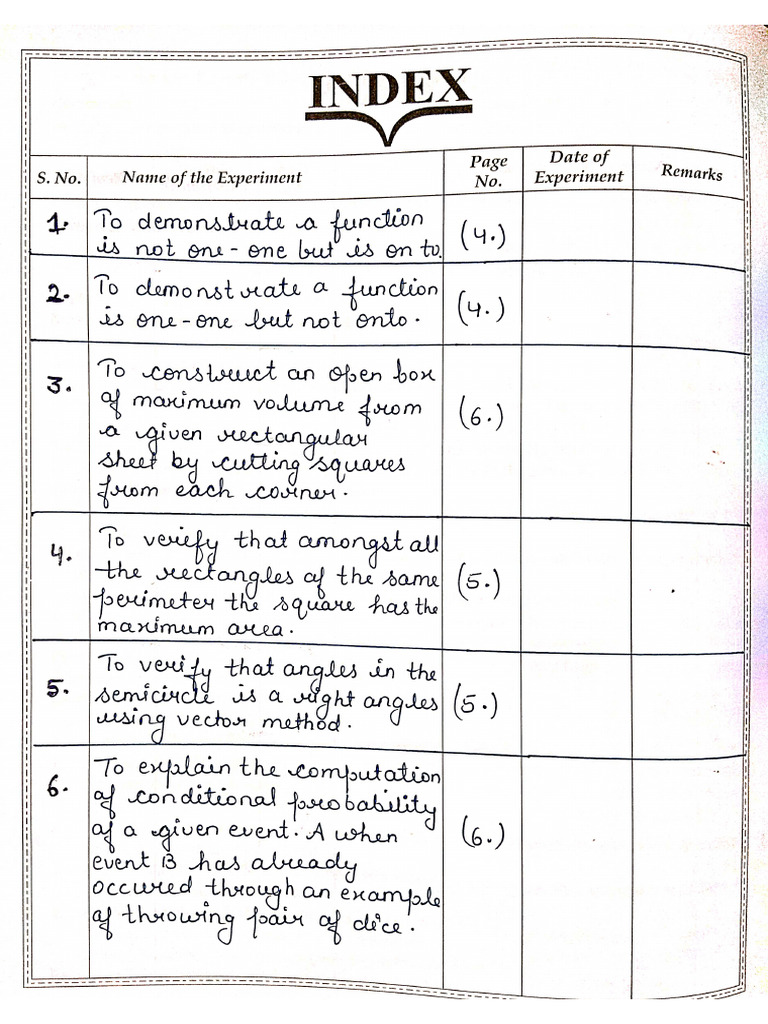 INDEX
S. No. Name of the Experiment Page No. Date of Experiment Remarks
1. To demonstrate a function
is not one-one but is on to. (4.)
2. To demonstrate a function (4.)
is one-one but not onto.
3. To construct an open box
of maximum volume from
a given rectangular (6.)
sheet by cutting squares
from each corner.
4. To verify that amongst all
the rectangles of the same (5.)
perimeter the square has the
maximum area.
5. To verify that angles in the
semicircle is a right angles (5.)
using vector method.
6. To explain the computation
of conditional probability
of a given event. A when (6.)
event B has already
occured through an example
of throwing pair of dice.